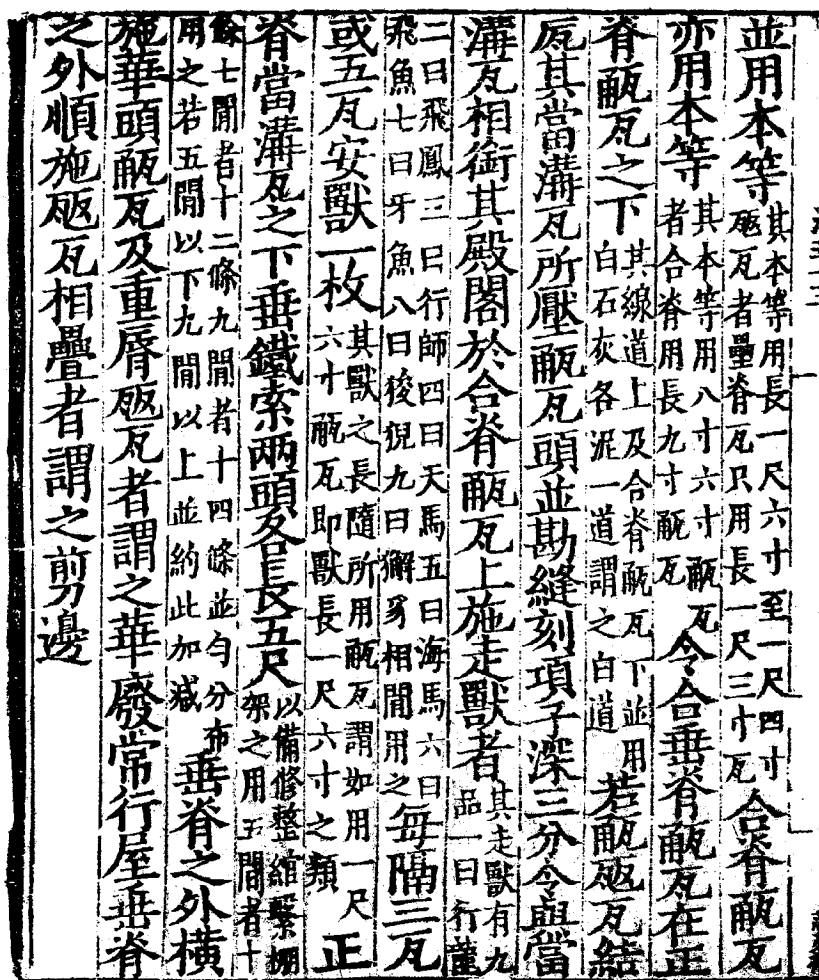 並用本等其本等用長一尺六寸至一尺四寸瓪瓦者壘脊瓦只用長一尺三寸瓦合脊㼧瓦
亦用本等其本等用八寸六寸㼧瓦者合脊用長九寸㼧瓦令合垂脊㼧瓦在正
脊㼧瓦之下其線道上及合脊㼧瓦下並用白石灰各泥一道謂之白道若㼧瓪瓦結
瓦其當溝瓦所壓㼧瓦頭並勘縫刻項子深三分令與當
溝瓦相銜其殿閣於合脊㼧瓦上施走獸者其走獸有九品一曰行龍
二曰飛鳳三曰行師四曰天馬五曰海馬六曰飛魚七曰牙魚八曰狻猊九曰獬豸相閒用之每隔三瓦
或五瓦安獸一枚其獸之長隨所用㼧瓦謂如用一尺六寸㼧瓦即獸長一尺六寸之類正
脊當溝瓦之下垂鐵索兩頭各長五尺以備修整綰繫棚架之用五閒者十
餘七閒者十二條九閒者十四條並勻分布用之若五閒以下九閒以上並約此加減垂脊之外橫
施華頭㼧瓦及重脣瓪瓦者謂之華廢常行屋垂脊
之外順施瓪瓦相疊者謂之剪邊